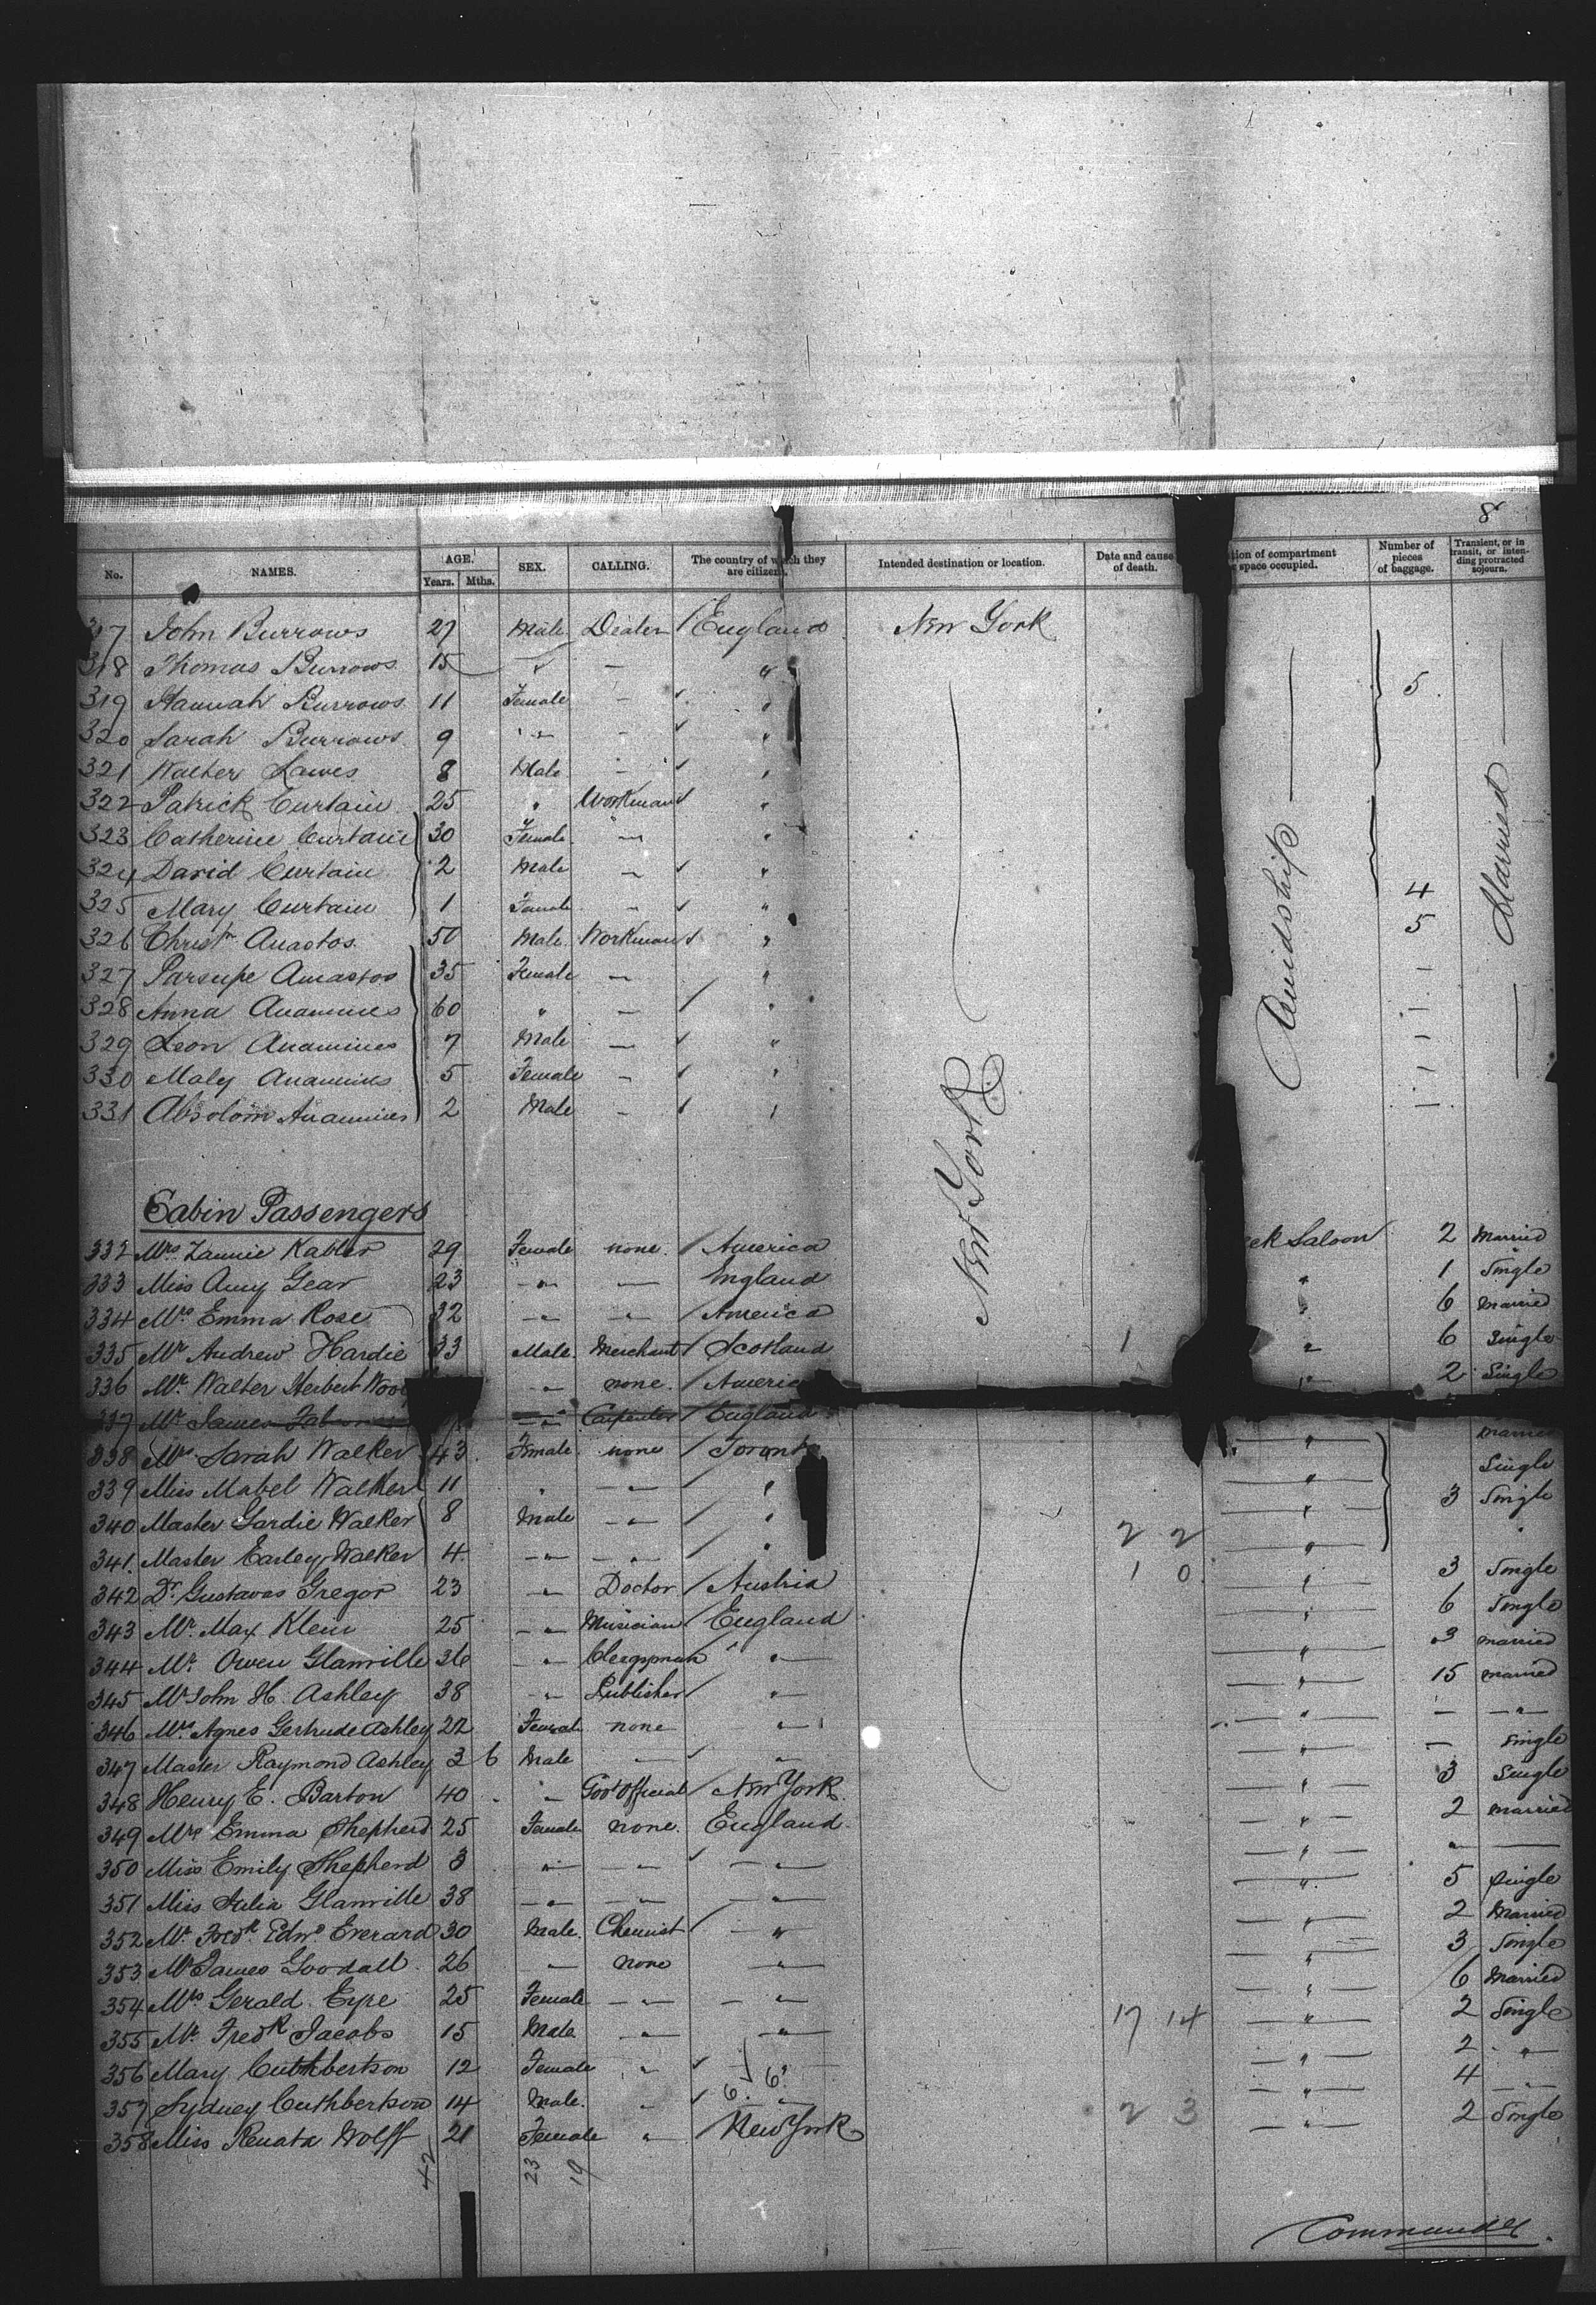 8
No. NAMES. AGE. Years. Mths. SEX. CALLING. The country of which they are citizens. Intended destination or location. Date and cause of death. tion of compartment space occupied. Number of pieces of baggage. Transient, or in transit, or intending protracted sojourn.
317 John Burrows 27 Male Dealer England New York
318 Thomas Burrows 15 " — "
319 Hannah Burrows 11 Female — " 5
320 Sarah Burrows 9 " — "
321 Walter Lawes 8 Male — "
322 Patrick Curtain 25 " Workman "
323 Catherine Curtain 30 Female " "
324 David Curtain 2 Male " "
325 Mary Curtain 1 Female " " 4
326 Christr Anastos 50 Male Workman " 5
327 Anastos 35 Female — " —
328 Anna 60 " — " —
329 Leon 7 Male — " —
330 Maly 5 Female — " —
331 Absolom 2 Male — " —
Amidships
Married
New York
Cabin Passengers
332 Mrs Kabler 29 Female none America eck Saloon 2 Married
333 Miss Amy Gear 23 " — England " 1 Single
334 Mrs Emma Rose 32 " " America " 6 Married
335 Mr Andrew Hardie 33 Male Merchant Scotland 1 " 6 Single
336 Mr Walter Herbert " none Americ " 2 Single
337 Mr James " Carpenter England
338 Mrs Sarah Walker 43 Female none Toronto " Married
339 Miss Mabel Walker 11 " " " " Single
340 Master Gardie Walker 8 Male " " 2 2 " 3 Single
341 Master Earley Walker 4 " " " 1 0 " "
342 Dr Gustavas Gregor 23 " Doctor Austria " 3 Single
343 Mr Max Klein 25 " Musician England " 6 Single
344 Mr Owen Glanville 36 " Clergyman " " 3 married
345 Mr John H. Ashley 38 " Publisher " " 15 married
346 Mrs Agnes Gertrude Ashley 22 Female none " " — "
347 Master Raymond Ashley 3 6 Male — " " — Single
348 Henry E. Barton 40 " Govt Official New York " 3 Single
349 Mrs Emma Shepherd 25 Female none England " 2 married
350 Miss Emily Shepherd 3 " " " " " —
351 Miss Julia Glanville 38 " " " " 5 Single
352 Mr Fredk Edwd Everard 30 Male Chemist " " 2 Married
353 Mr James Goodall 26 " none " " 3 Single
354 Mrs Gerald Eyre 25 Female " " " 6 Married
355 Mr Fredk Jacobs 15 Male " " 17 14 " 2 Single
356 Mary Cuthbertson 12 Female " " 2 "
357 Sydney Cuthbertson 14 Male " 6 6 " 4 "
358 Miss Renata Wolff 21 Female " New York 2 3 " 2 Single
42 23 19
Commander